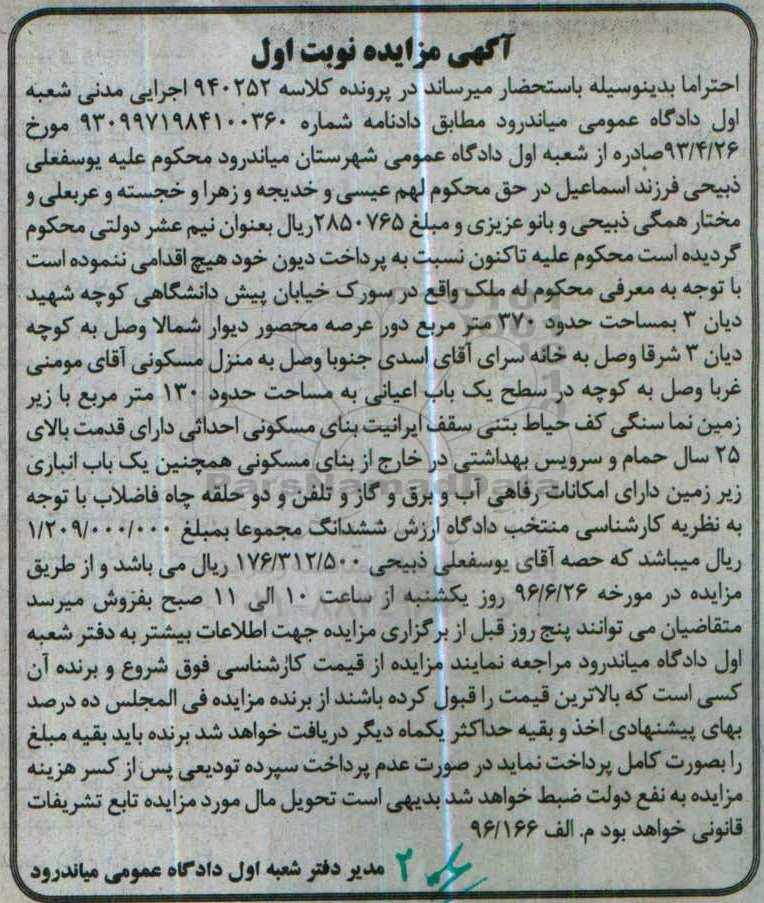 آگهی مزایده نوبت اول
احتراما بدینوسیله باستحضار میرساند در پرونده کلاسه ۹۴۰۲۵۲ اجرایی مدنی شعبه
اول دادگاه عمومی میاندرود مطابق دادنامه شماره ۹۳۰۹۹۷۱۹۸۴۱۰۰۳۶۰ مورخ
۹۳/۴/۲۶صادره از شعبه اول دادگاه عمومی شهرستان میاندرود محکوم علیه یوسفعلی
ذبیحی فرزند اسماعیل در حق محکوم لهم عیسی و خدیجه و زهرا و خجسته و عربعلی و
مختار همگی ذبیحی و بانو عزیزی و مبلغ ۲۸۵۰۷۶۵ریال بعنوان نیم عشر دولتی محکوم
گردیده است محکوم علیه تاکنون نسبت به پرداخت دیون خود هیچ اقدامی ننموده است
با توجه به معرفی محکوم له ملک واقع در سورک خیابان پیش دانشگاهی کوچه شهید
دیان ۳ بمساحت حدود ۳۷۰ متر مربع دور عرصه محصور دیوار شمالا وصل به کوچه
دیان ۳ شرقا وصل به خانه سرای آقای اسدی جنوبا وصل به منزل مسکونی آقای مومنی
غربا وصل به کوچه در سطح یک باب اعیانی به مساحت حدود ۱۳۰ متر مربع با زیر
زمین نما سنگی کف حیاط بتنی سقف ایرانیت بنای مسکونی احداثی دارای قدمت بالای
۲۵ سال حمام و سرویس بهداشتی در خارج از بنای مسکونی همچنین یک باب انباری
زیر زمین دارای امکانات رفاهی آب و برق و گاز و تلفن و دو حلقه چاه فاضلاب با توجه
به نظریه کارشناسی منتخب دادگاه ارزش ششدانگ مجموعا بمبلغ ۱/۲۰۹/۰۰۰/۰۰۰
ریال میباشد که حصه آقای یوسفعلی ذبیحی ۱۷۶/۳۱۲/۵۰۰ ریال می باشد و از طریق
مزایده در مورخه ۹۶/۶/۲۶ روز یکشنبه از ساعت ۱۰ الی ۱۱ صبح بفروش میرسد
متقاضیان می توانند پنج روز قبل از برگزاری مزایده جهت اطلاعات بیشتر به دفتر شعبه
اول دادگاه میاندرود مراجعه نمایند مزایده از قیمت کارشناسی فوق شروع و برنده آن
کسی است که بالاترین قیمت را قبول کرده باشند از برنده مزایده فی المجلس ده درصد
بهای پیشنهادی اخذ و بقیه حداکثر یکماه دیگر دریافت خواهد شد برنده باید بقیه مبلغ
را بصورت کامل پرداخت نماید در صورت عدم پرداخت سپرده تودیعی پس از کسر هزینه
مزایده به نفع دولت ضبط خواهد شد بدیهی است تحویل مال مورد مزایده تابع تشریفات
قانونی خواهد بود م. الف ۹۶/۱۶۶
مدیر دفتر شعبه اول دادگاه عمومی میاندرود
ParsNamadData